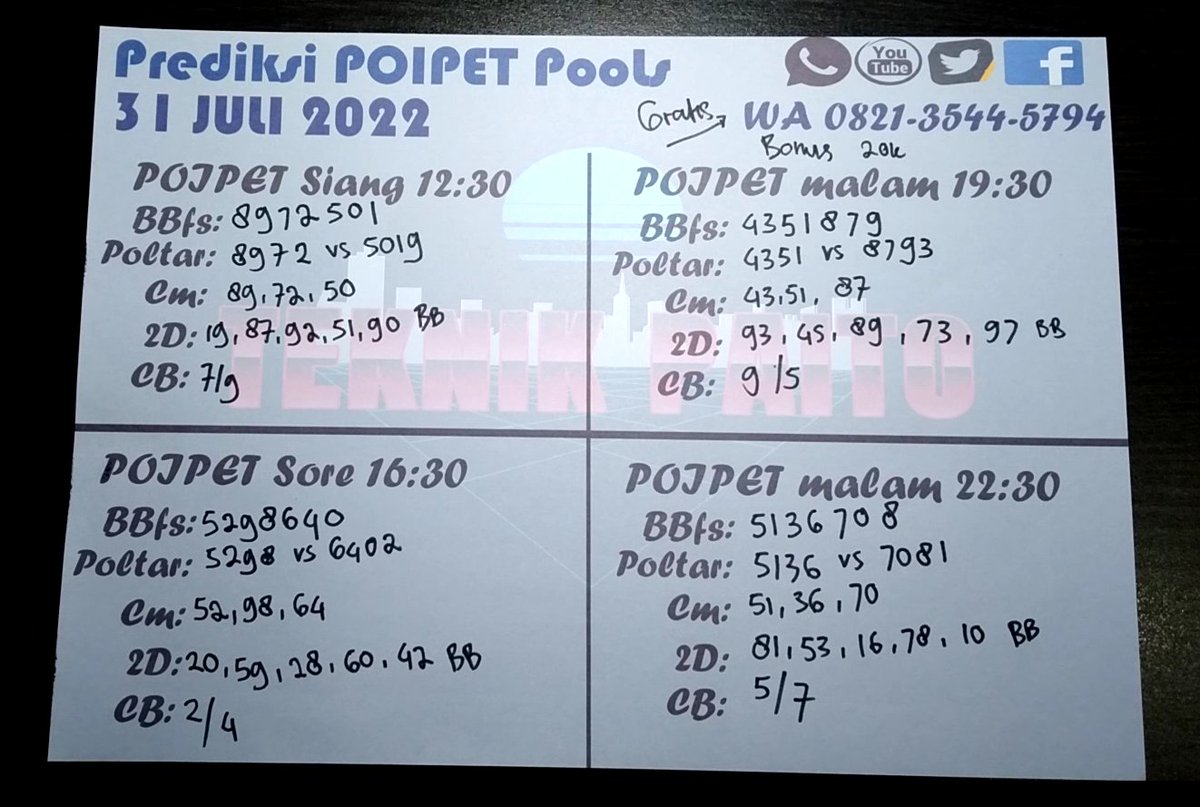 Prediksi POIPET Pools
31 JULI 2022
You
Tube
f
Gratis
WA 0821-3544-5794
Bonus 20k
POIPET Siang 12:30
BBfs: 8972501
Poltar: 8972 vs 5019
Cm: 89, 72, 50
2D: 19, 87, 92, 51, 90 BB
CB: 7/9
POIPET malam 19:30
BBfs: 4351879
Poltar: 4351 vs 8793
Cm: 43, 51, 87
2D: 93, 45, 89, 73, 97 BB
CB: 9/5
TEKNIK PAITO
POIPET Sore 16:30
BBfs: 5298640
Poltar: 5298 vs 6402
Cm: 52, 98, 64
2D: 20, 59, 28, 60, 42 BB
CB: 2/4
POIPET malam 22:30
BBfs: 5136708
Poltar: 5136 vs 7081
Cm: 51, 36, 70
2D: 81, 53, 16, 78, 10 BB
CB: 5/7